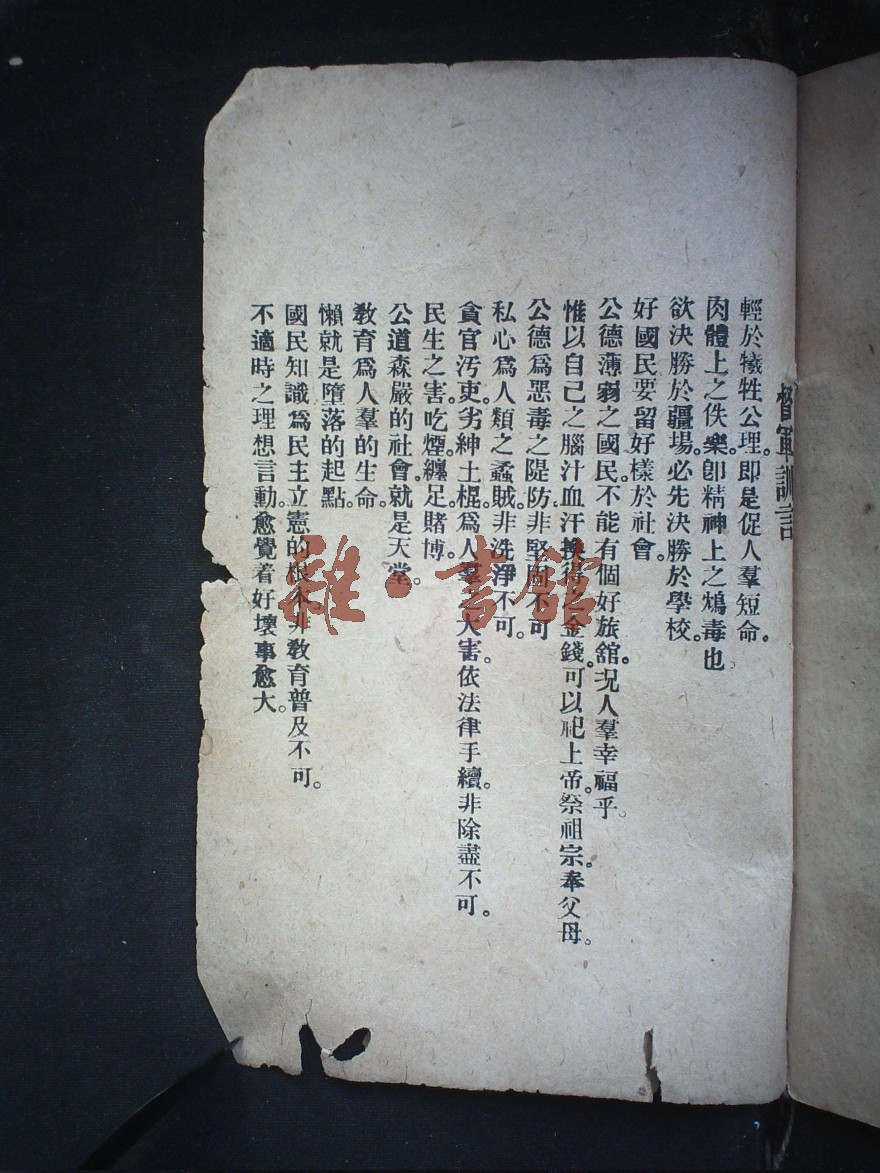 督軍訓言
輕於犧牲公理。卽是促人羣短命。
肉體上之佚樂。卽精神上之鴆毒也
欲決勝於疆場。必先決勝於學校。
好國民要留好樣於社會。
公德薄弱之國民。不能有個好旅舘。况人羣幸福乎。
惟以自己之腦汁血汗換得之金錢。可以祀上帝。祭祖宗。奉父母。
公德爲惡毒之隄防。非堅固不可
私心爲人類之蟊賊。非洗淨不可。
貪官汚吏。劣紳土棍。爲人羣之大害。依法律手續。非除盡不可。
民生之害。吃煙。纏足。賭博。
公道森嚴的社會。就是天堂。
敎育爲人羣的生命。
懶就是墮落的起點。
國民知識爲民主立憲的根本。非敎育普及不可。
不適時之理想言動。愈覺着好。壞事愈大。
雜·書館